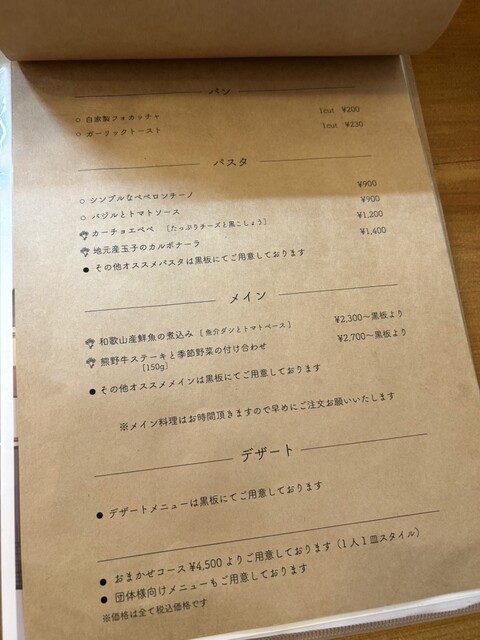 パン
○ 自家製フォカッチャ 1cut ¥200
○ ガーリックトースト 1cut ¥230
パスタ
○ シンプルなペペロンチーノ ¥900
○ バジルとトマトソース ¥900
カーチョエペペ ［たっぷりチーズと黒こしょう］ ¥1,200
地元産玉子のカルボナーラ ¥1,400
● その他オススメパスタは黒板にてご用意しております
メイン
和歌山産鮮魚の煮込み［魚介ダシとトマトベース］ ¥2,300〜黒板より
熊野牛ステーキと季節野菜の付け合わせ ¥2,700〜黒板より
［150g］
● その他オススメメインは黒板にてご用意しております
※メイン料理はお時間頂きますので早めにご注文お願いいたします
デザート
● デザートメニューは黒板にてご用意しております
● おまかせコース¥4,500よりご用意しております（1人1皿スタイル）
● 団体様向けメニューもご用意しております
※価格は全て税込価格です